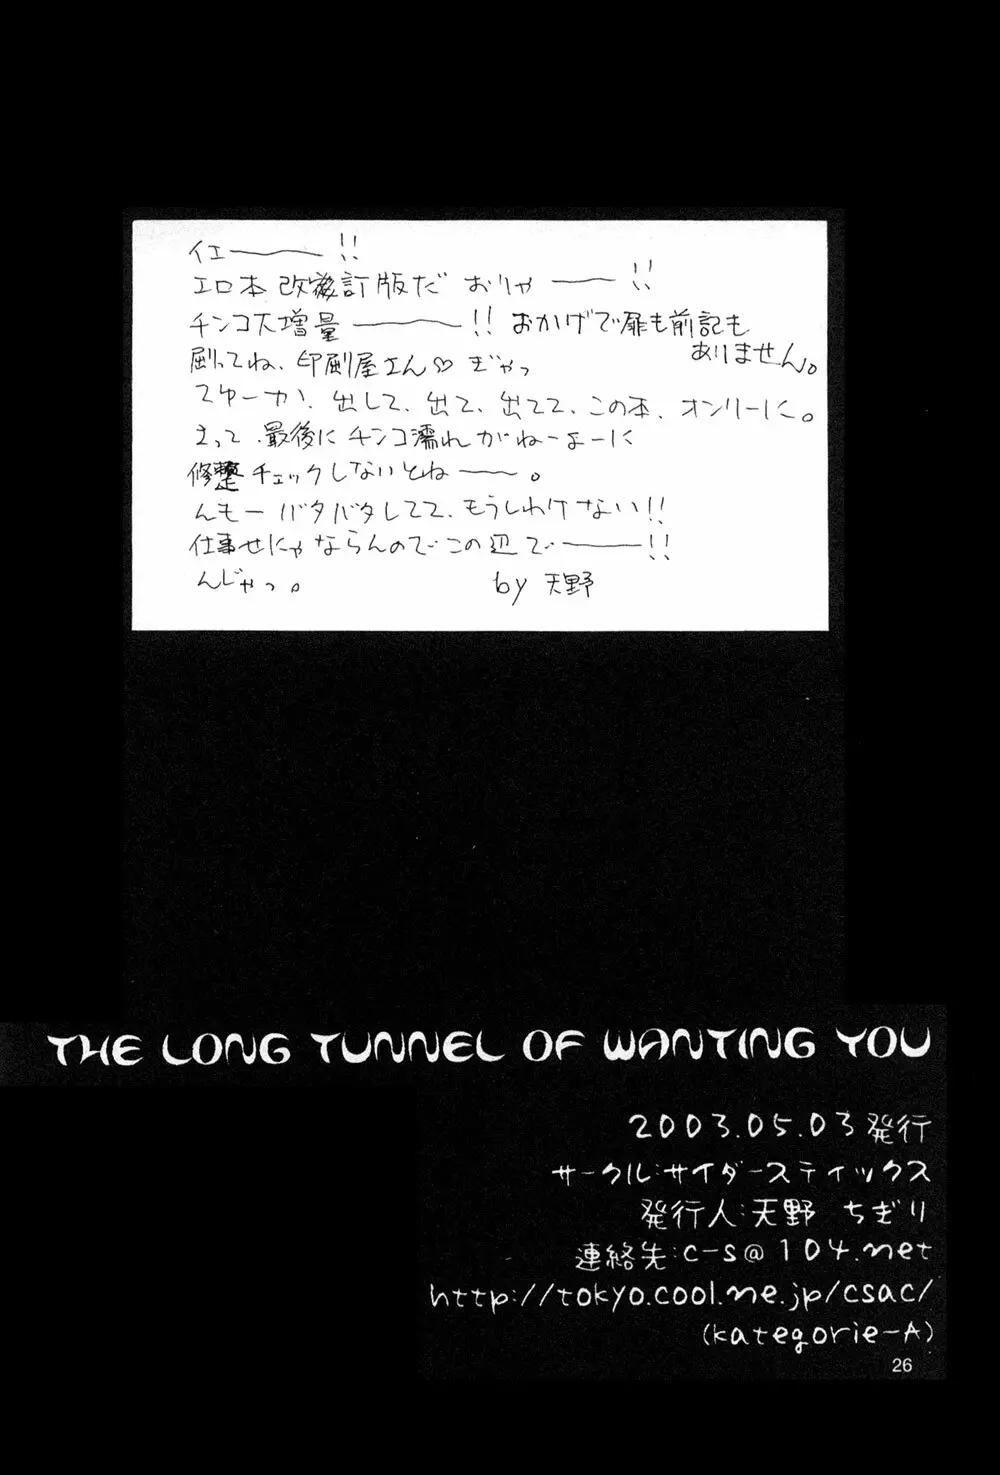 イエ――!!
エロ本 改訂版だ おりゃ――!!
チンコ大増量――!! おかげで扉も前記も
ありません。
刷ってね、印刷屋さん♡ ぎゃっ
てゆーか、出して、出て、出てて、この本、オンリーに。
さって、最後にチンコ濡れがねーよーに
修整チェックしないとねー。
んもー バタバタしてて、もうしわけない!!
仕事せにゃならんのでこの辺で――!!
んじゃっ。 by 天野
THE LONG TUNNEL OF WANTING YOU
2003.05.03発行
サークル:サイダースティックス
発行人:天野 ちぎり
連絡先:c-s@104.net
http://tokyo.cool.ne.jp/csac/
(kategorie-A)
26